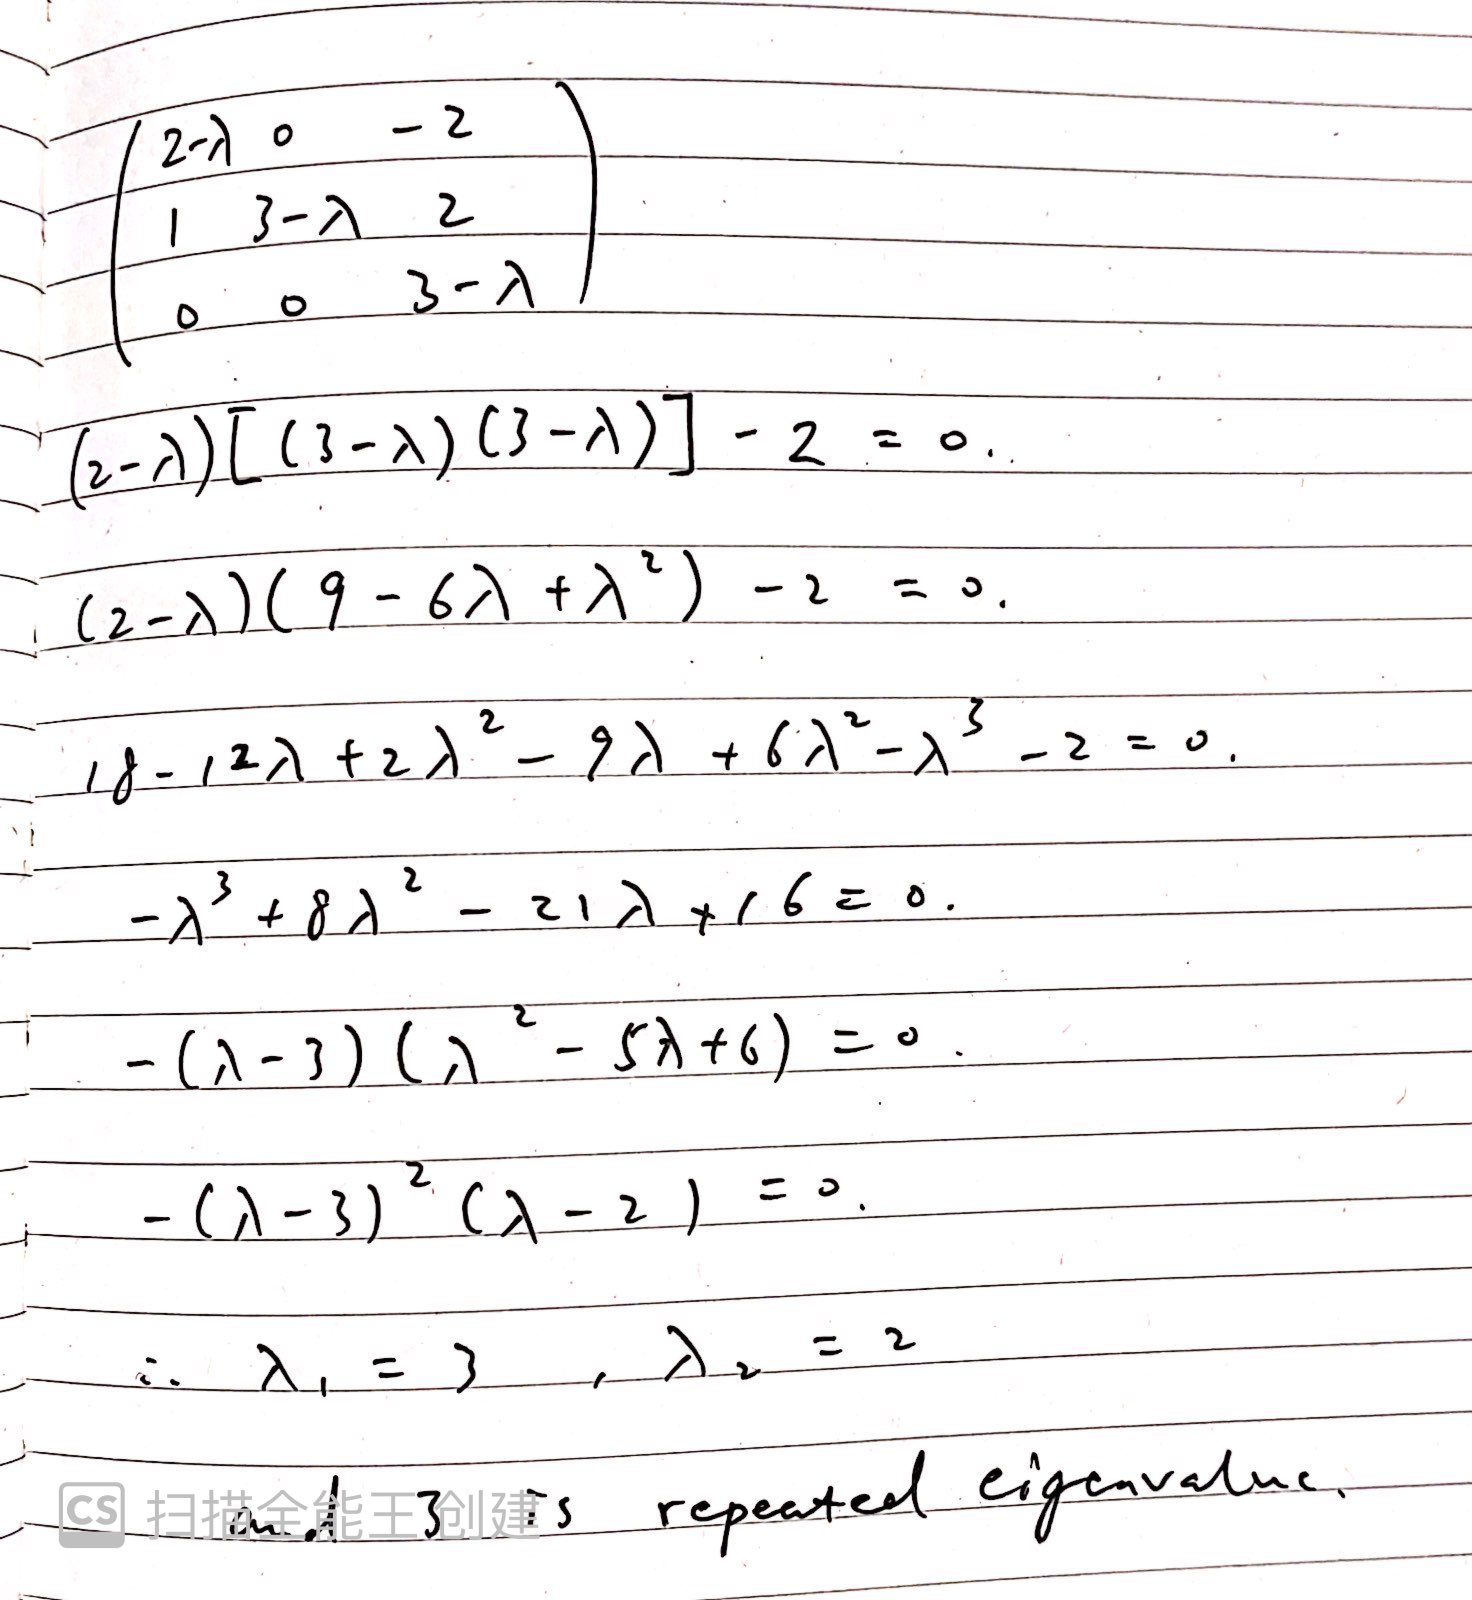 2-λ 0 -2
1 3-λ 2
0 0 3-λ
(2-λ)[(3-λ)(3-λ)] - 2 = 0.
(2-λ)(9 - 6λ + λ²) - 2 = 0.
18 - 12λ + 2λ² - 9λ + 6λ² - λ³ - 2 = 0.
-λ³ + 8λ² - 21λ + 16 = 0.
-(λ-3)(λ² - 5λ + 6) = 0.
-(λ-3)²(λ-2) = 0.
∴ λ₁ = 3 , λ₂ = 2
and 3 is repeated eigenvalue.
CS 扫描全能王创建